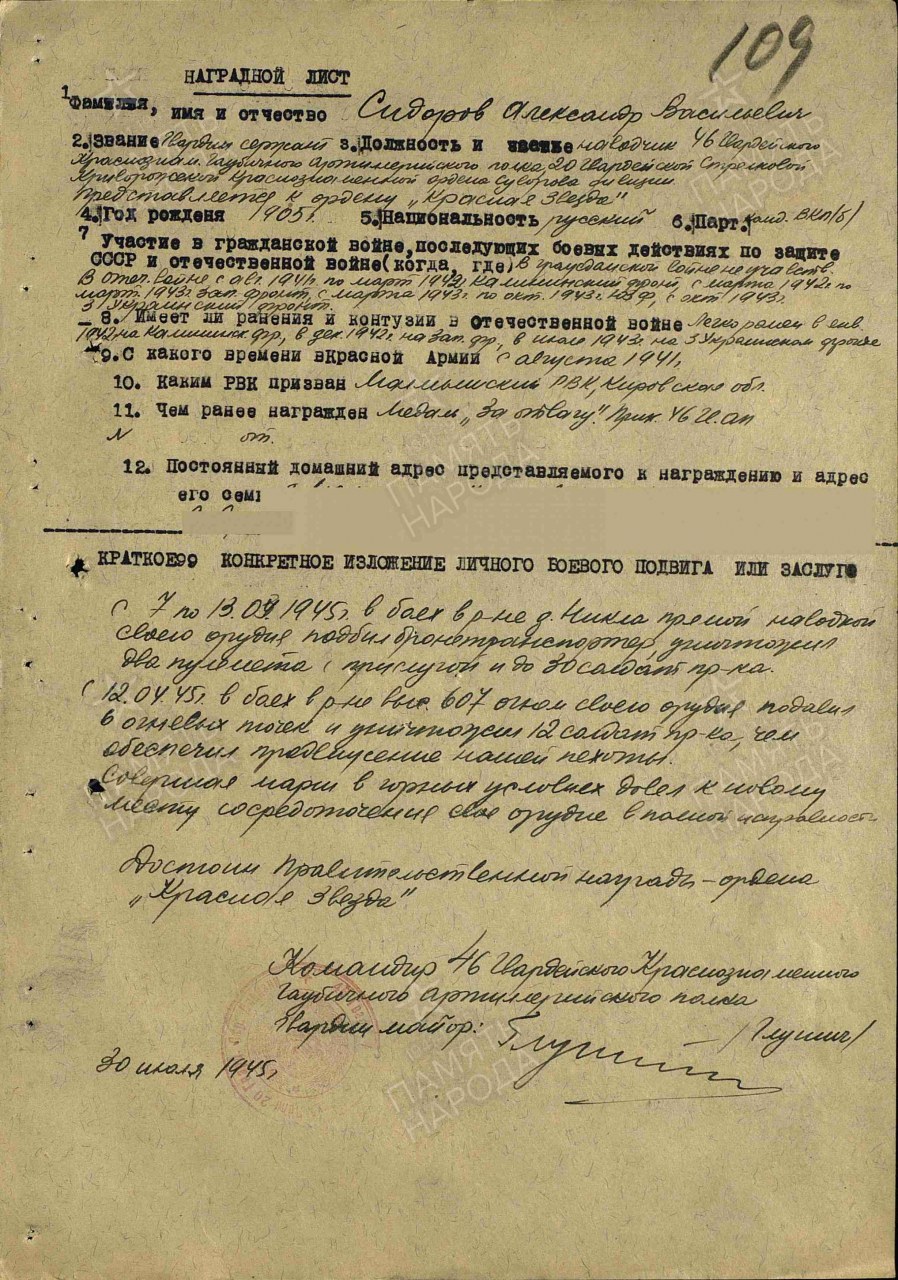 109
НАГРАДНОЙ ЛИСТ
1 Фамилия, имя и отчество Сидоров Александр Васильевич
2. Звание Гвардии сержант 3. Должность и часть наводчик 46 Гвардейского
Краснознам. Гаубичного Артиллерийского полка, 20 Гвардейской Стрелковой
Криворожской Краснознаменной ордена Суворова дивизии
Представляется к ордену „Красная Звезда"
4. Год рожденя 1905г. 5. Национальность русский 6. Парт. канд. ВКП/б/
7 Участие в гражданской войне, последующих боевых действиях по защите
СССР и отечественной войне(когда, где) В гражданской войне не участв.
В отеч. войне с авг. 1941г. по март 1942г Калининский фронт, с марта 1942г. по
март 1943г. Зап. фронт, с марта 1943г. по окт. 1943г. ЮЗФ, с окт 1943г.
3 Украинский фронт.
8. Имеет ли ранения и контузии в отечественной войне Легко ранен в янв.
1942 на Калининск. фр., в дек 1942г. на Зап. фр, в июле 1943г. на 3 Украинском фронте
9. С какого времени вКрасной Армии с августа 1941г.
10. Каким РВК призван Малмыжский РВК, Кировская обл.
11. Чем ранее награжден Медаль „За отвагу". Прик. 46 Гв. ап
N от.
12. Постоянный домашний адрес представляемого к награждению и адрес
его сем
КРАТКОЕ99 КОНКРЕТНОЕ ИЗЛОЖЕНИЕ ЛИЧНОГО БОЕВОГО ПОДВИГА ИЛИ ЗАСЛУГ
С 7 по 13.03.1945г. в боях в р-не д. Никла прямой наводкой
своего орудия подбил бронетранспортер, уничтожил
два пулемета с прислугой и до 30 солдат пр-ка.
12.04.45г. в боях в р-не выс. 607 огнем своего орудия подавил
6 огневых точек и уничтожил 12 солдат пр-ка, чем
обеспечил продвижение нашей пехоты.
Совершая марш в горных условиях довел к новому
месту сосредоточения свое орудие в полной исправности
Достоин Правительственной награды – ордена
„Красная Звезда"
Командир 46 Гвардейского Краснознаменного
Гаубичного Артиллерийского полка
Гвардии майор: /Глушич/
30 июля 1945г
ПАМЯТЬ НАРОДА